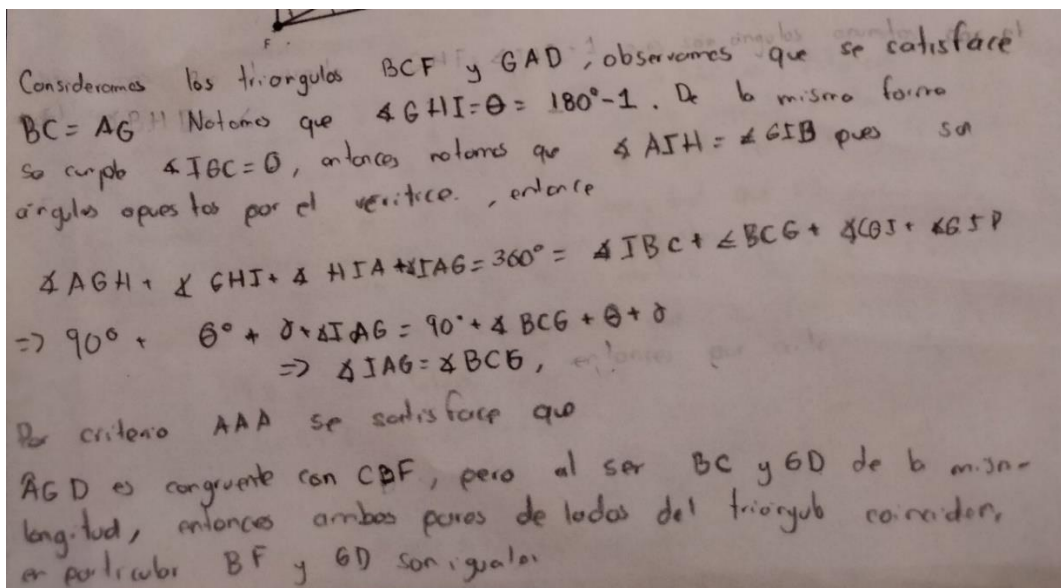 F
Consideramos los triangulos BCF y GAD, observamos que se satisface
BC = AG Notamos que ∡GHI = θ = 180° - 1. De la misma forma
se cumple ∡IGC = θ, entonces notamos que ∡AIH = ∡GIB pues son
ángulos opuestos por el veritice. , entonce
∡AGH + ∡GHI + ∡HIA + ∡IAG = 360° = ∡IBC + ∠BCG + ∡CGI +
=> 90° + θ° + γ + ∡IAG = 90° + ∡BCG + θ + γ
=> ∡IAG = ∡BCG,
Por criterio AAA se satisface que
AGD es congruente con CBF, pero al ser BC y GD de la misma
longitud, entonces ambos pares de lados del triángulo coinciden,
en particular BF y GD son iguales